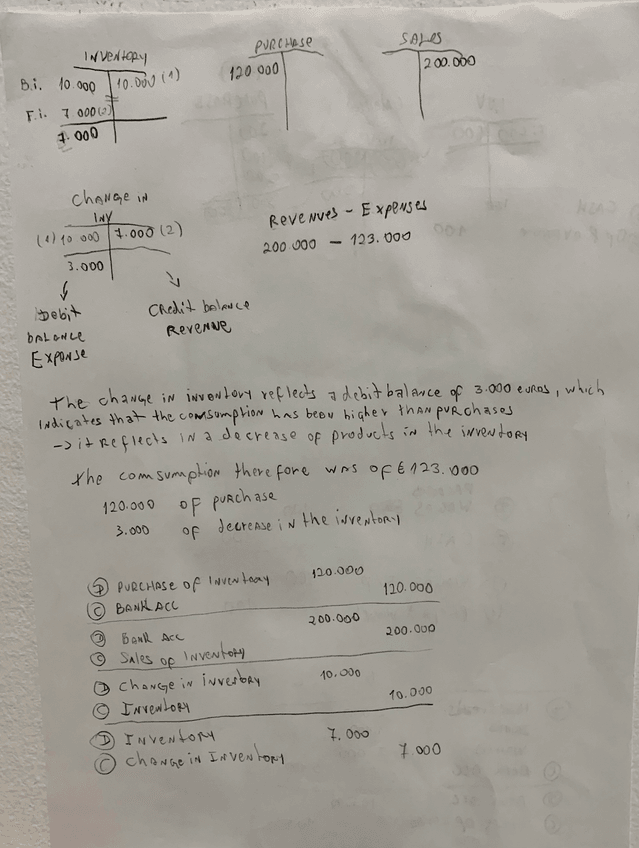 INVENTORY
PURCHASE
SALES
B.i. 10.000 10.000 (1)
120.000
200.000
F.i. 7 000(2)
7.000
CHANGE IN
INV
(1) 10 000 7.000 (2)
3.000
Revenues - Expenses
200 000 - 123.000
Debit
balance
Expense
Credit balance
Revenue
The change in inventory reflects a debit balance of 3.000 euros, which
indicates that the comsumption has been higher than purchases
-> it reflects in a decrease of products in the inventory
The comsumption therefore was of € 123.000
120.000 of purchase
3.000 of decrease in the inventory
D PURCHASE OF INVENTORY 120.000
C BANK ACC 120.000
D BANK ACC 200.000
C SALES OF INVENTORY 200.000
D CHANGE IN INVENTORY 10.000
C INVENTORY 10.000
D INVENTORY 7.000
C CHANGE IN INVENTORY 7 000